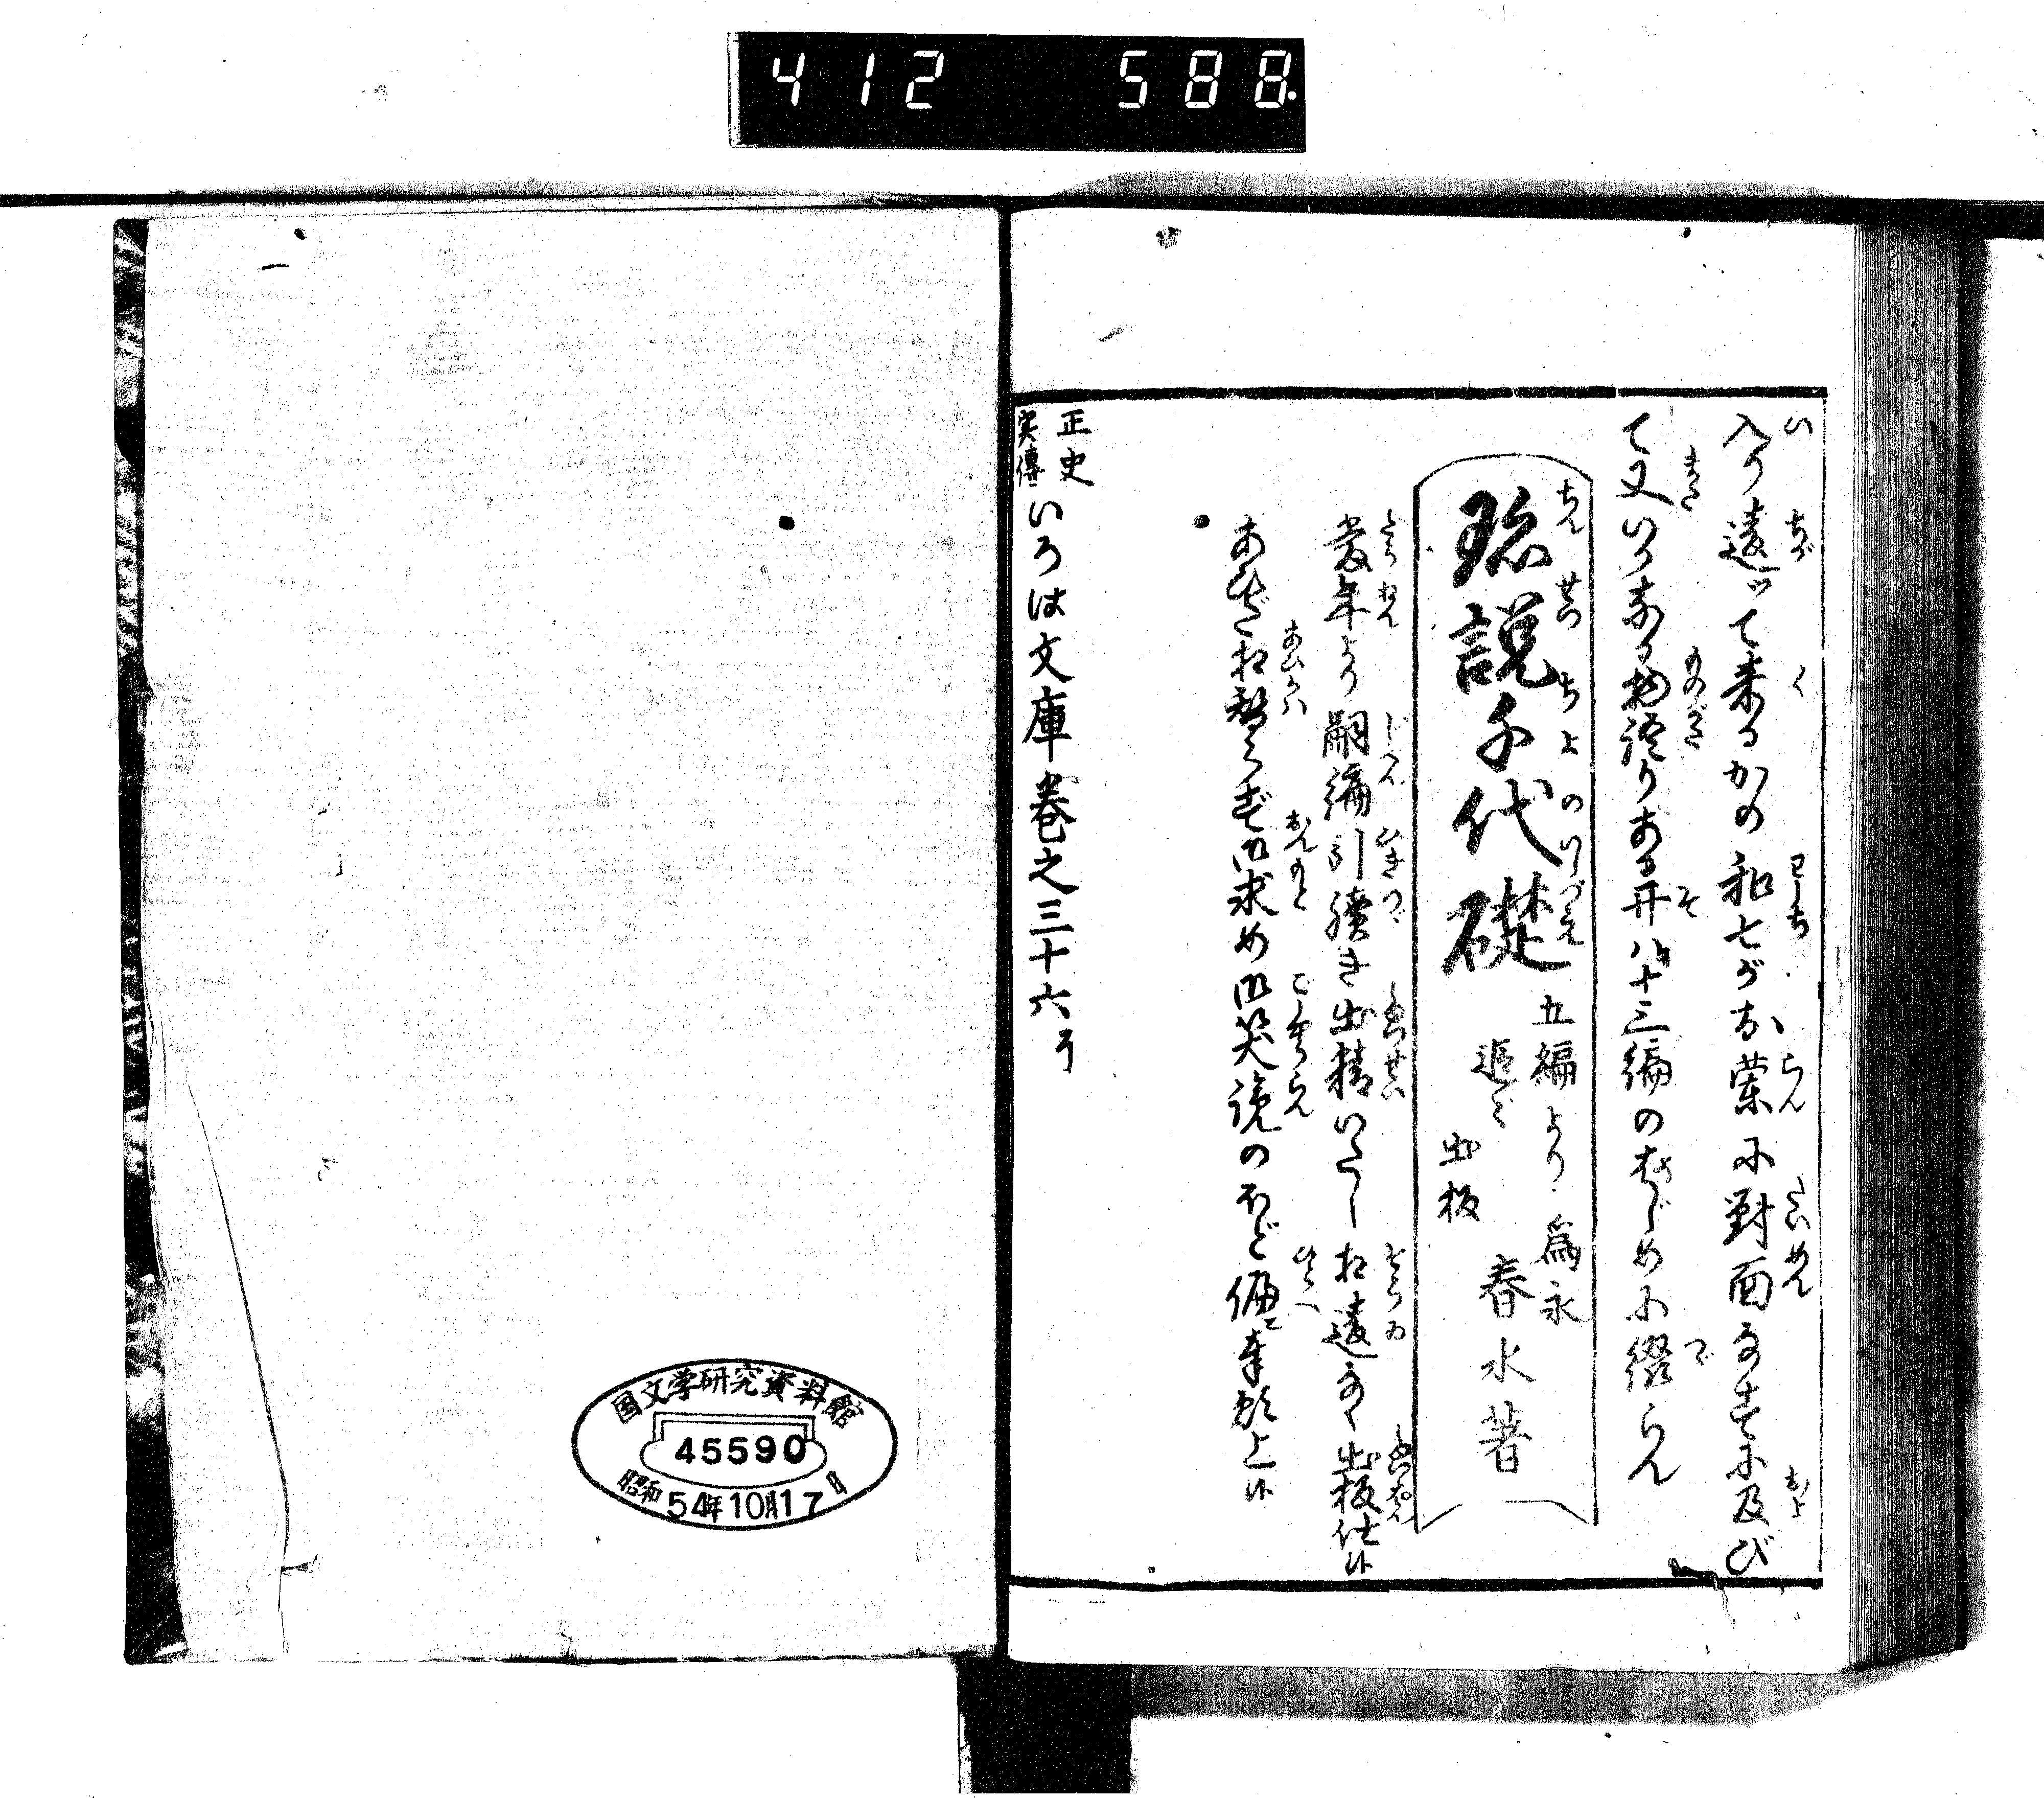 412 588.
入り違ッて来るかの和七がお蘭に對面なすに及び
て又いかなる物語りある开ハ十三編のはじめに綴らん
珎説千代礎
五編より
追々
出板
為永
春水著
當年より嗣編引續き出精いたし相違なく出板仕候
あひだ相替らず御求め御笑覧のほど偏ニ奉願上候
正史
実傳
いろは文庫巻之三十六了
国文学研究資料館
45590
昭和54年10月17日